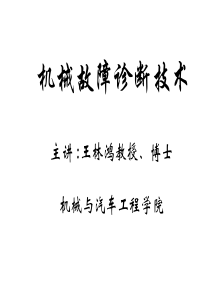 机械故障诊断技术
主讲:王林鸿教授、博士
机械与汽车工程学院